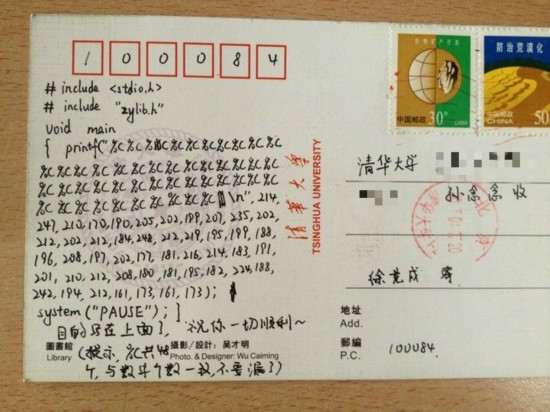 1 0 0 0 8 4
# include <stdio.h>
# include "zylib.h"
void main
{ printf("%c%c%c%c%c%c%c%c
%c%c%c%c%c%c%c%c%c%c
%c%c%c%c%c%c%c%c%c%c
%c%c%c%c%c%c%c%c%c%c
%c%c%c%c%c%c%c%c%c%c\n", 214,
247,210,170,190,205,202,199,207,235,202,
212,202,212,184,248,212,219,195,199,188,
196,208,197,202,177,181,216,214,183,191,
201,210,212,208,180,181,195,182,224,188,
242,194,212,161,173,161,173);
system("PAUSE"); }
目的写在上面了,祝你一切顺利~
(提示:%c共48
个,与数字个数一致,不要漏了)
圖書館
Library
攝影/設計:吴才明
Photo. & Designer: Wu Caiming
清華大學
TSINGHUA UNIVERSITY
中国邮政
30分
CHINA
防治荒漠化
中国邮政
CHINA
50
清华大学
孙念念 收
地址
Add.
郵編
P.C.
100084